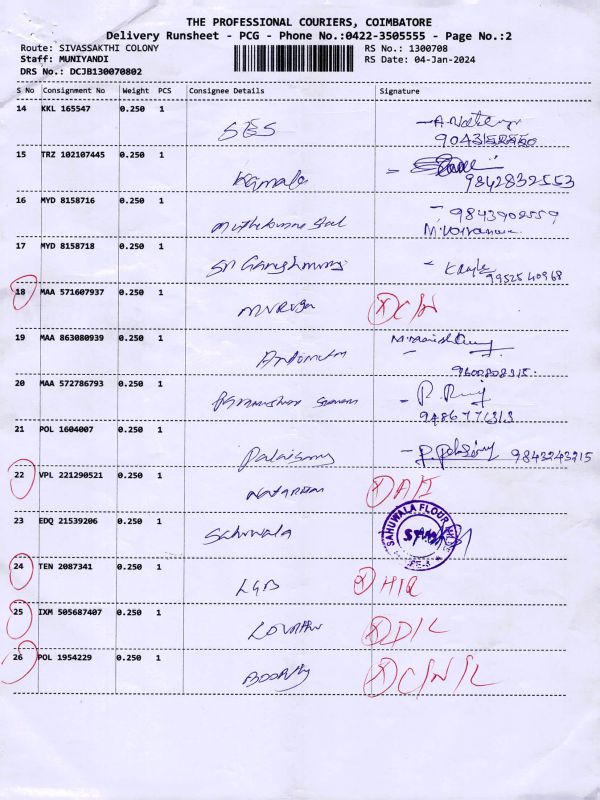 THE PROFESSIONAL COURIERS, COIMBATORE
Delivery Runsheet - PCG - Phone No.:0422-3505555 - Page No.:2
Route: SIVASSAKTHI COLONY RS No.: 1300708
Staff: MUNIYANDI RS Date: 04-Jan-2024
DRS No.: DCJB130070802
S No Consignment No Weight PCS Consignee Details Signature
14 KKL 165547 0.250 1
SES
15 TRZ 102107445 0.250 1
Kamala 9842832553
16 MYD 8158716 0.250 1
9843902559
17 MYD 8158718 0.250 1
Sri
9952540968
18 MAA 571607937 0.250 1
Murugan C/N
19 MAA 863080939 0.250 1
9600808315
20 MAA 572786793 0.250 1
9486777313
21 POL 1604007 0.250 1
Palaisamy 9843243215
22 VPL 221290521 0.250 1
Natarajan
23 EDQ 21539206 0.250 1
Sahuwala SAHUWALA FLOUR MILLS
24 TEN 2087341 0.250 1
LGB
25 IXM 505687407 0.250 1
D/L
26 POL 1954229 0.250 1
C/N/L